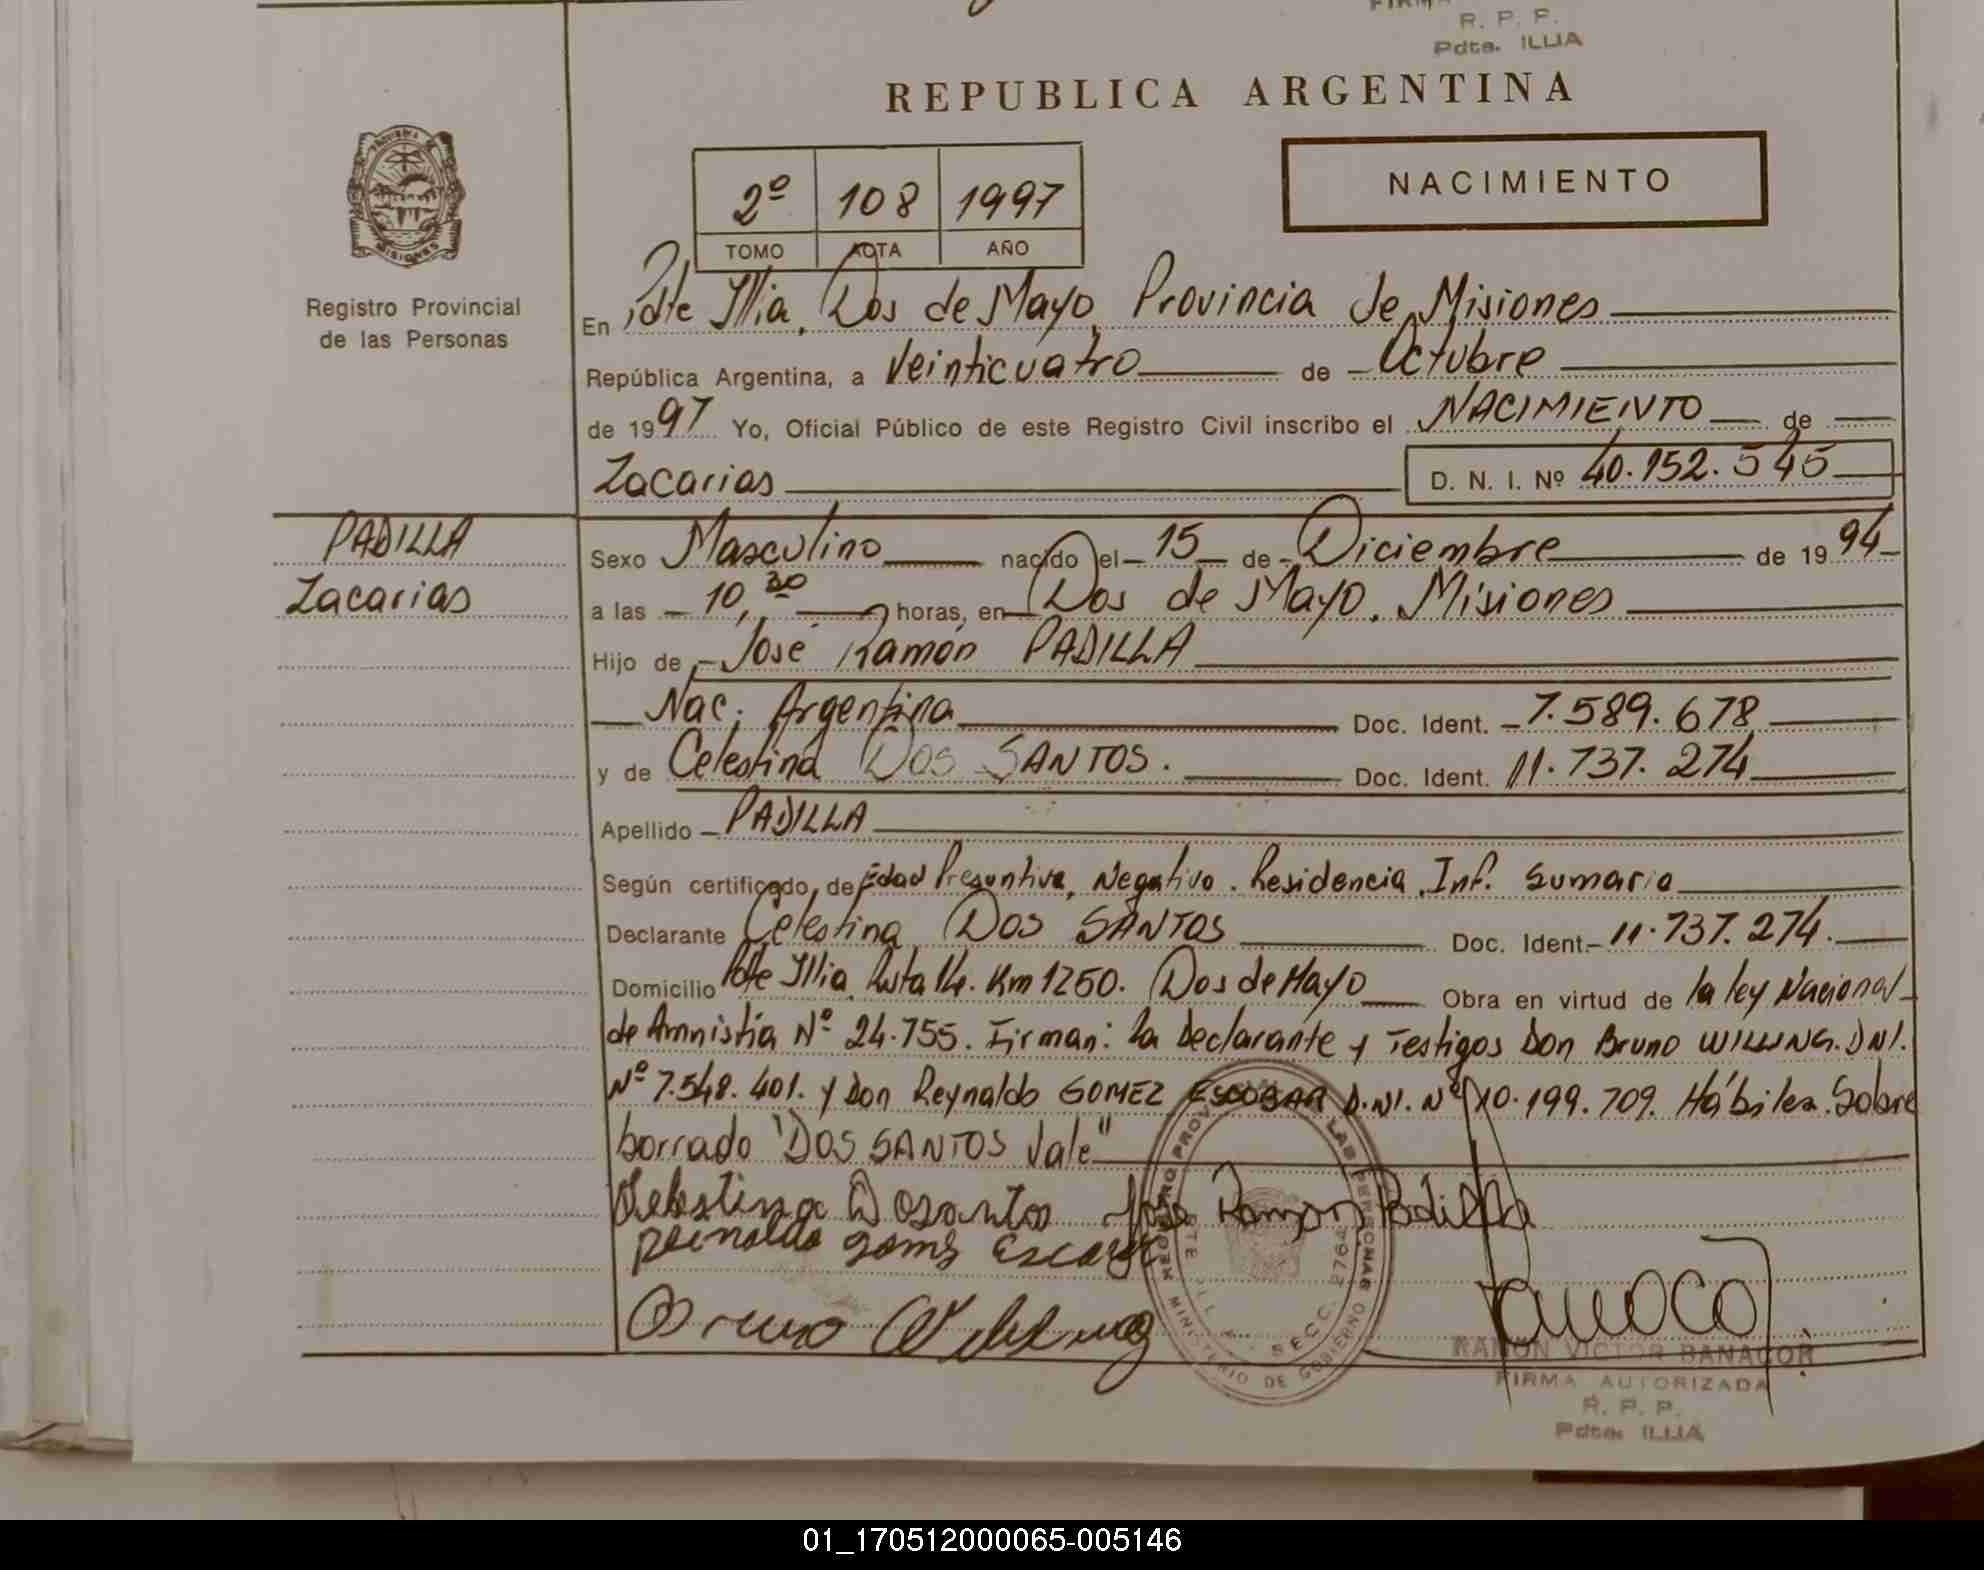 R. P. P.
Pdte. ILLIA
REPUBLICA ARGENTINA
MISIONES
Registro Provincial
de las Personas
2º 108 1997
TOMO ACTA AÑO
NACIMIENTO
En Pdte Illia, Dos de Mayo, Provincia de Misiones
República Argentina, a Veinticuatro de Octubre
de 1997 Yo, Oficial Público de este Registro Civil inscribo el NACIMIENTO de
Zacarias D. N. I. Nº 40.152.545
PADILLA
Zacarias
Sexo Masculino nacido el 15 de Diciembre de 1994
a las 10,30 horas, en Dos de Mayo. Misiones
Hijo de José Ramón PADILLA
Nac. Argentina Doc. Ident. 7.589.678
y de Celestina DOS SANTOS. Doc. Ident. 11.737.274
Apellido PADILLA
Según certificado, de Edad Presuntiva, Negativo. Residencia, Inf. Sumaria
Declarante Celestina DOS SANTOS Doc. Ident. 11.737.274.
Domicilio Pdte Illia Ruta 14. Km 1250. Dos de Mayo Obra en virtud de la ley Nacional
de Amnistía Nº 24.755. Firman: la Declarante y Testigos Don Bruno WILLING. DNI.
Nº 7.548.401. y Don Reynaldo GOMEZ ESCOBAR D.NI. Nº 10.199.709. Hábiles. Sobre
borrado "DOS SANTOS Vale"
Celestina Dosantos José Ramon Padilla
REGISTRO PROV LAS PERSONAS
MINISTERIO DE GOBIERNO
SECC. 2764
RAMON VICTOR BANACOR
FIRMA AUTORIZADA
R. P. P.
Pdte. ILLIA
01_170512000065-005146